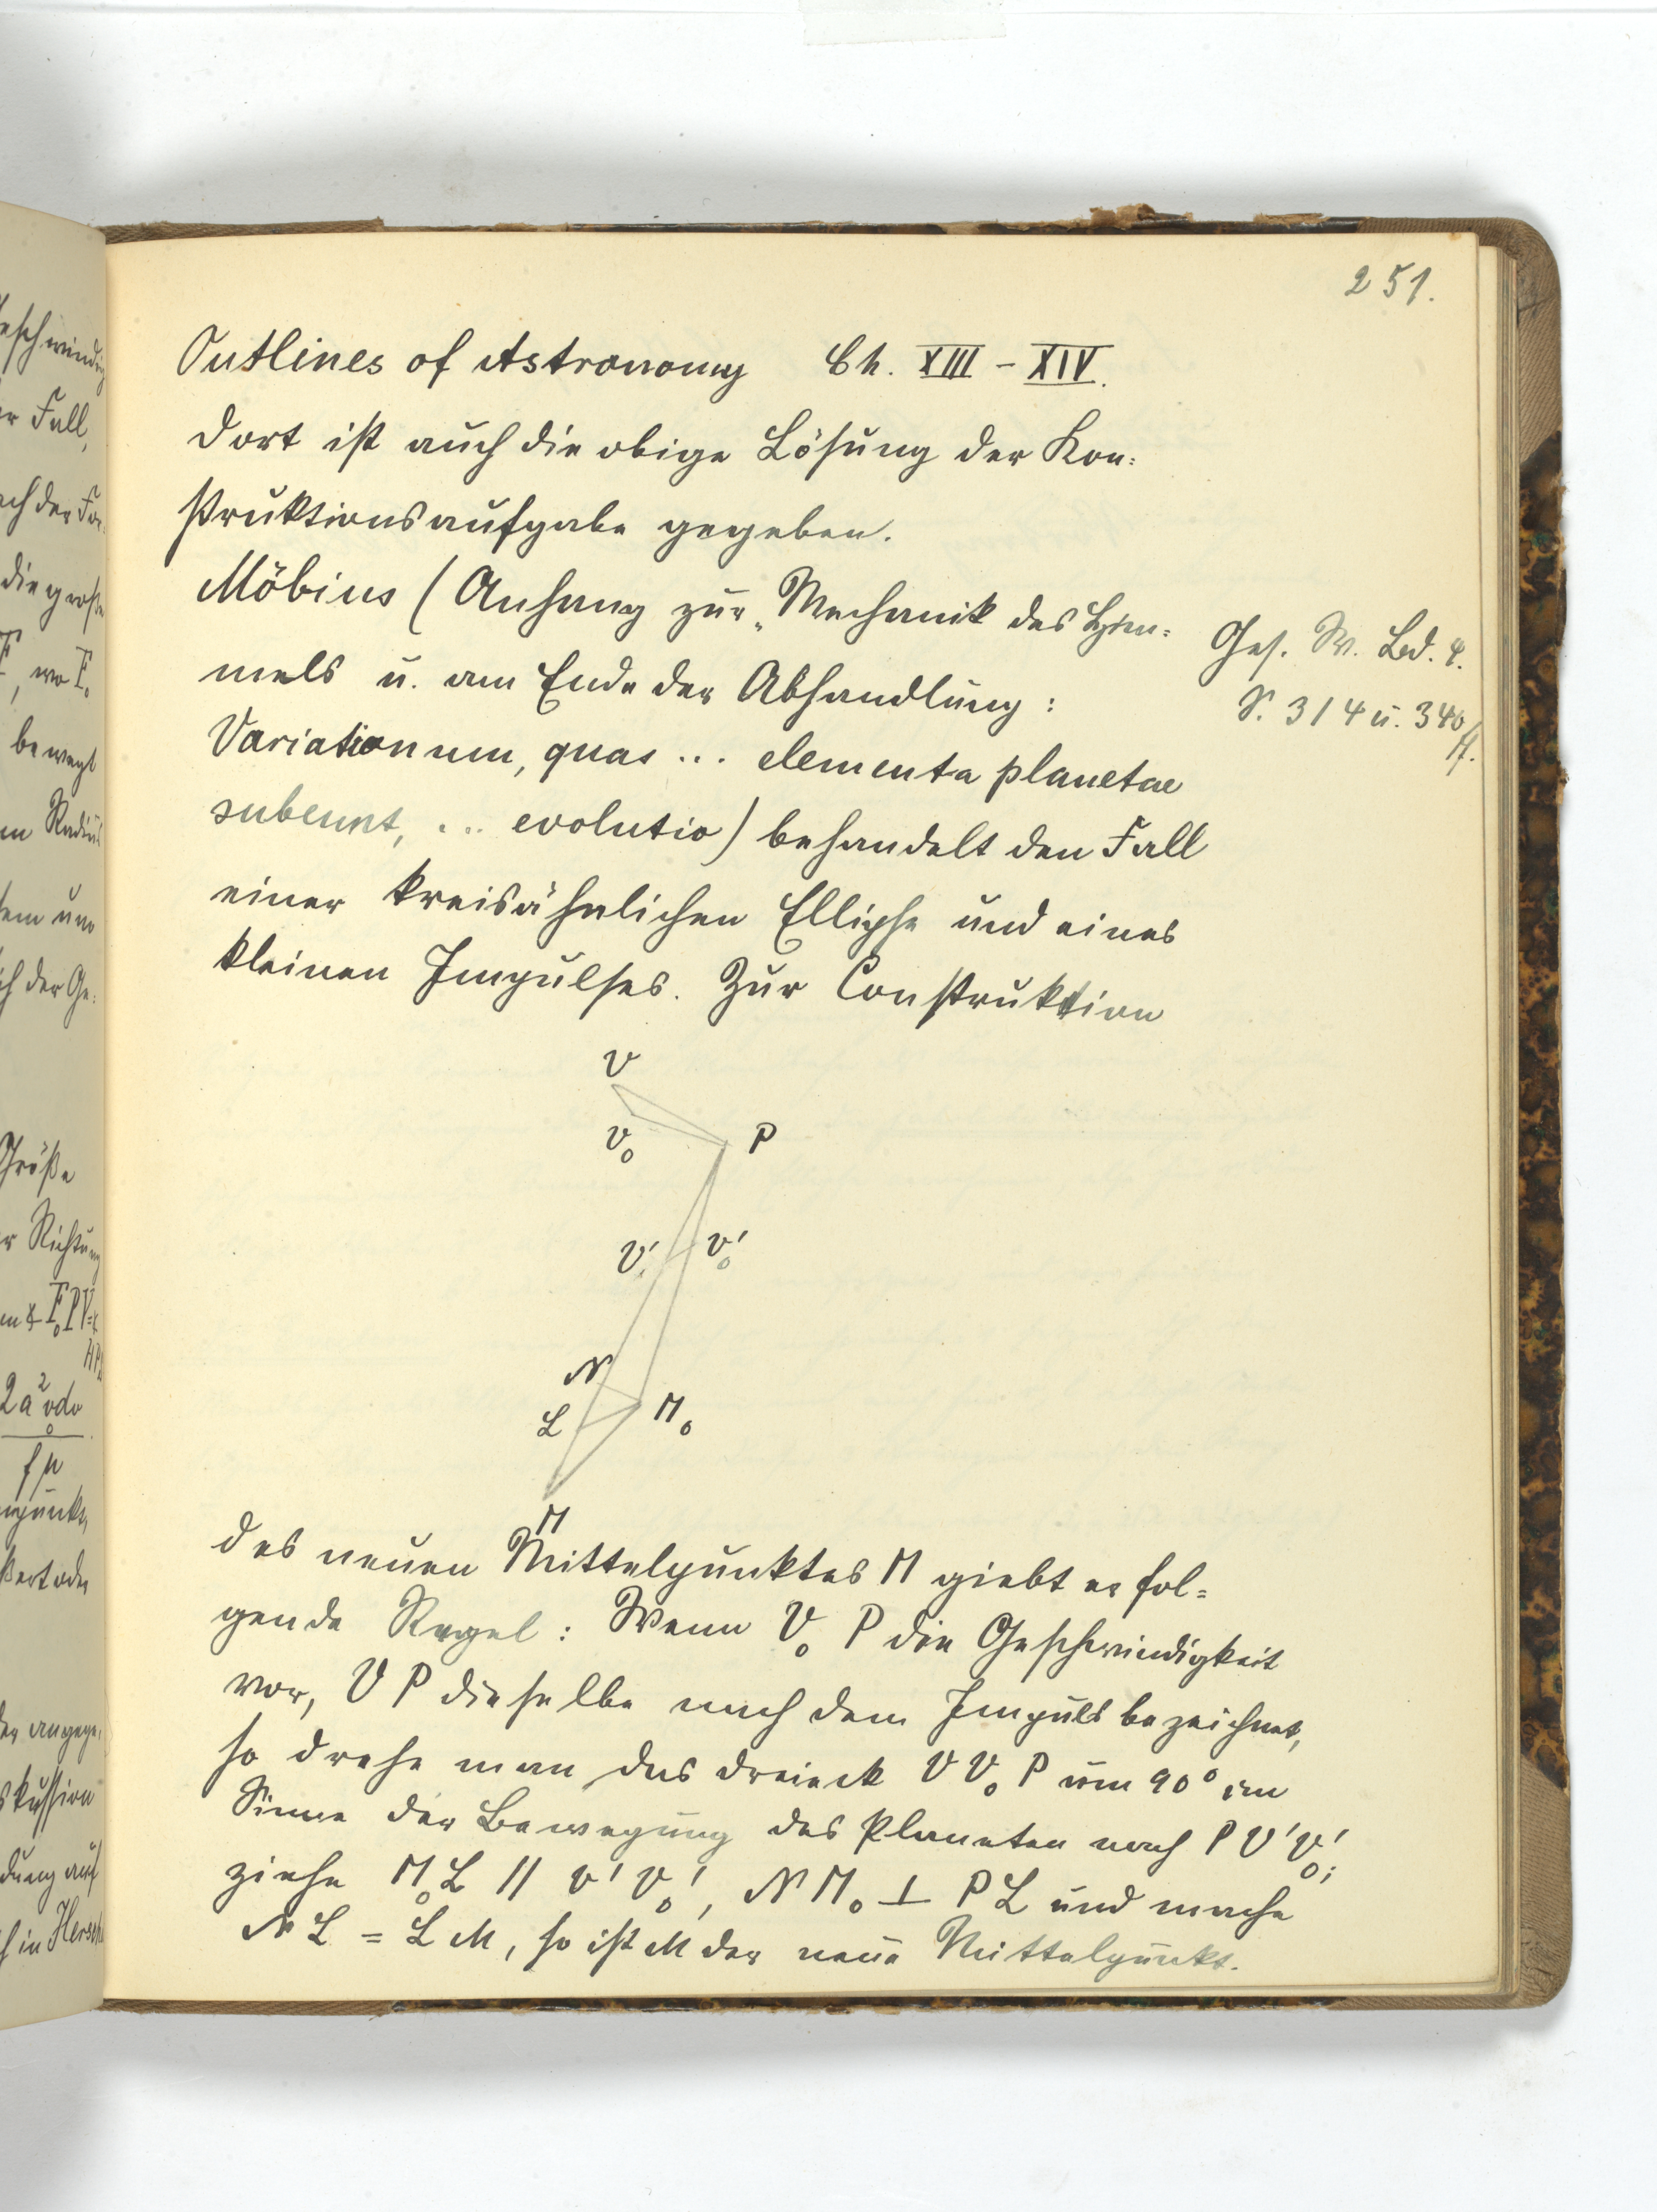 251.
Outlines of Astronomy Ch. XIII - XIV.
Dort ist auch die obige Lösung der Kon=
struktionsaufgabe gegeben.
Möbius (Anhang zur „Mechanik des Him=
mels u. am Ende der Abhandlung:
Variationum, quas ... elementa planetae
subeunt, ... evolutio) behandelt den Fall
einer kreisähnlichen Ellipse und eines
kleinen Impulses. Zur Construktion
Ges. W. Bd. 4.
S. 314 u. 340
ff.
V
V₀ P
V' V₀'
N
L M₀
M
des neuen Mittelpunktes M giebt er fol=
gende Regel: Wenn V₀ P die Geschwindigkeit
vor, V P dieselbe nach dem Impuls bezeichnet,
so drehe man das Dreieck V V₀ P um 90° im
Sinne der Bewegung des Planeten nach P V' V₀';
ziehe M₀L // V' V₀', N M₀ ⊥ P L und mache
N L = L M, so ist M der neue Mittelpunkt.
er Fall,
ach der
die große
F, wo F₀
bewegt
Radius
um
ch der Ge=
Größe
r Richtung
F₀PV=
2a²vdv
fμ
der angege=
skussion
dung auf
in Hersch